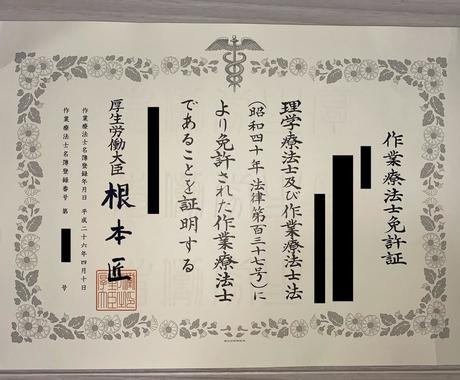 作業療法士免許証
理学療法士及び作業療法士法
(昭和四十年法律第百三十七号)に
より免許された作業療法士
であることを証明する
厚生労働大臣 根本匠
作業療法士名簿登録年月日 平成二十六年四月十日
作業療法士名簿登録番号 第 号